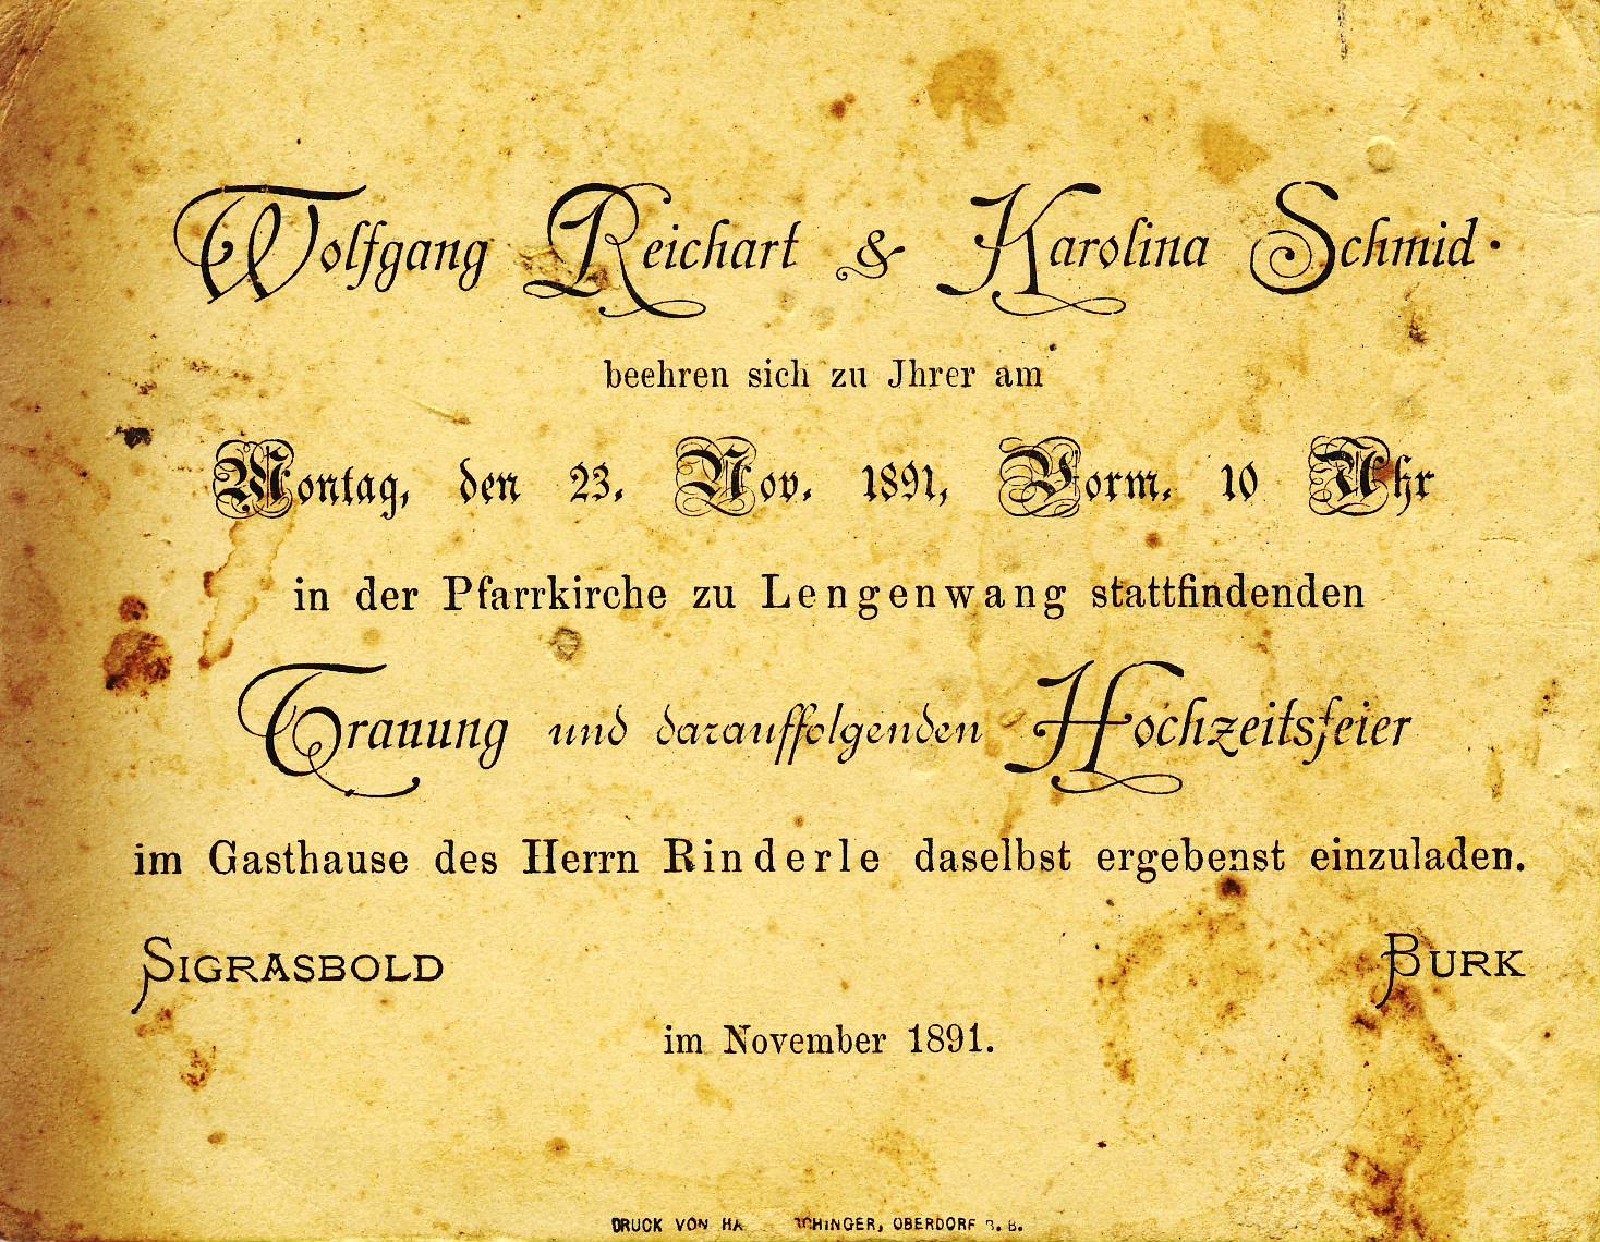 Wolfgang Reichart & Karolina Schmid.
beehren sich zu Jhrer am
Montag, den 23. Nov. 1891, Vorm. 10 Uhr
in der Pfarrkirche zu Lengenwang stattfindenden
Trauung und darauffolgenden Hochzeitsfeier
im Gasthause des Herrn Rinderle daselbst ergebenst einzuladen.
SIGRASBOLD
BURK
im November 1891.
DRUCK VON OBERDORF